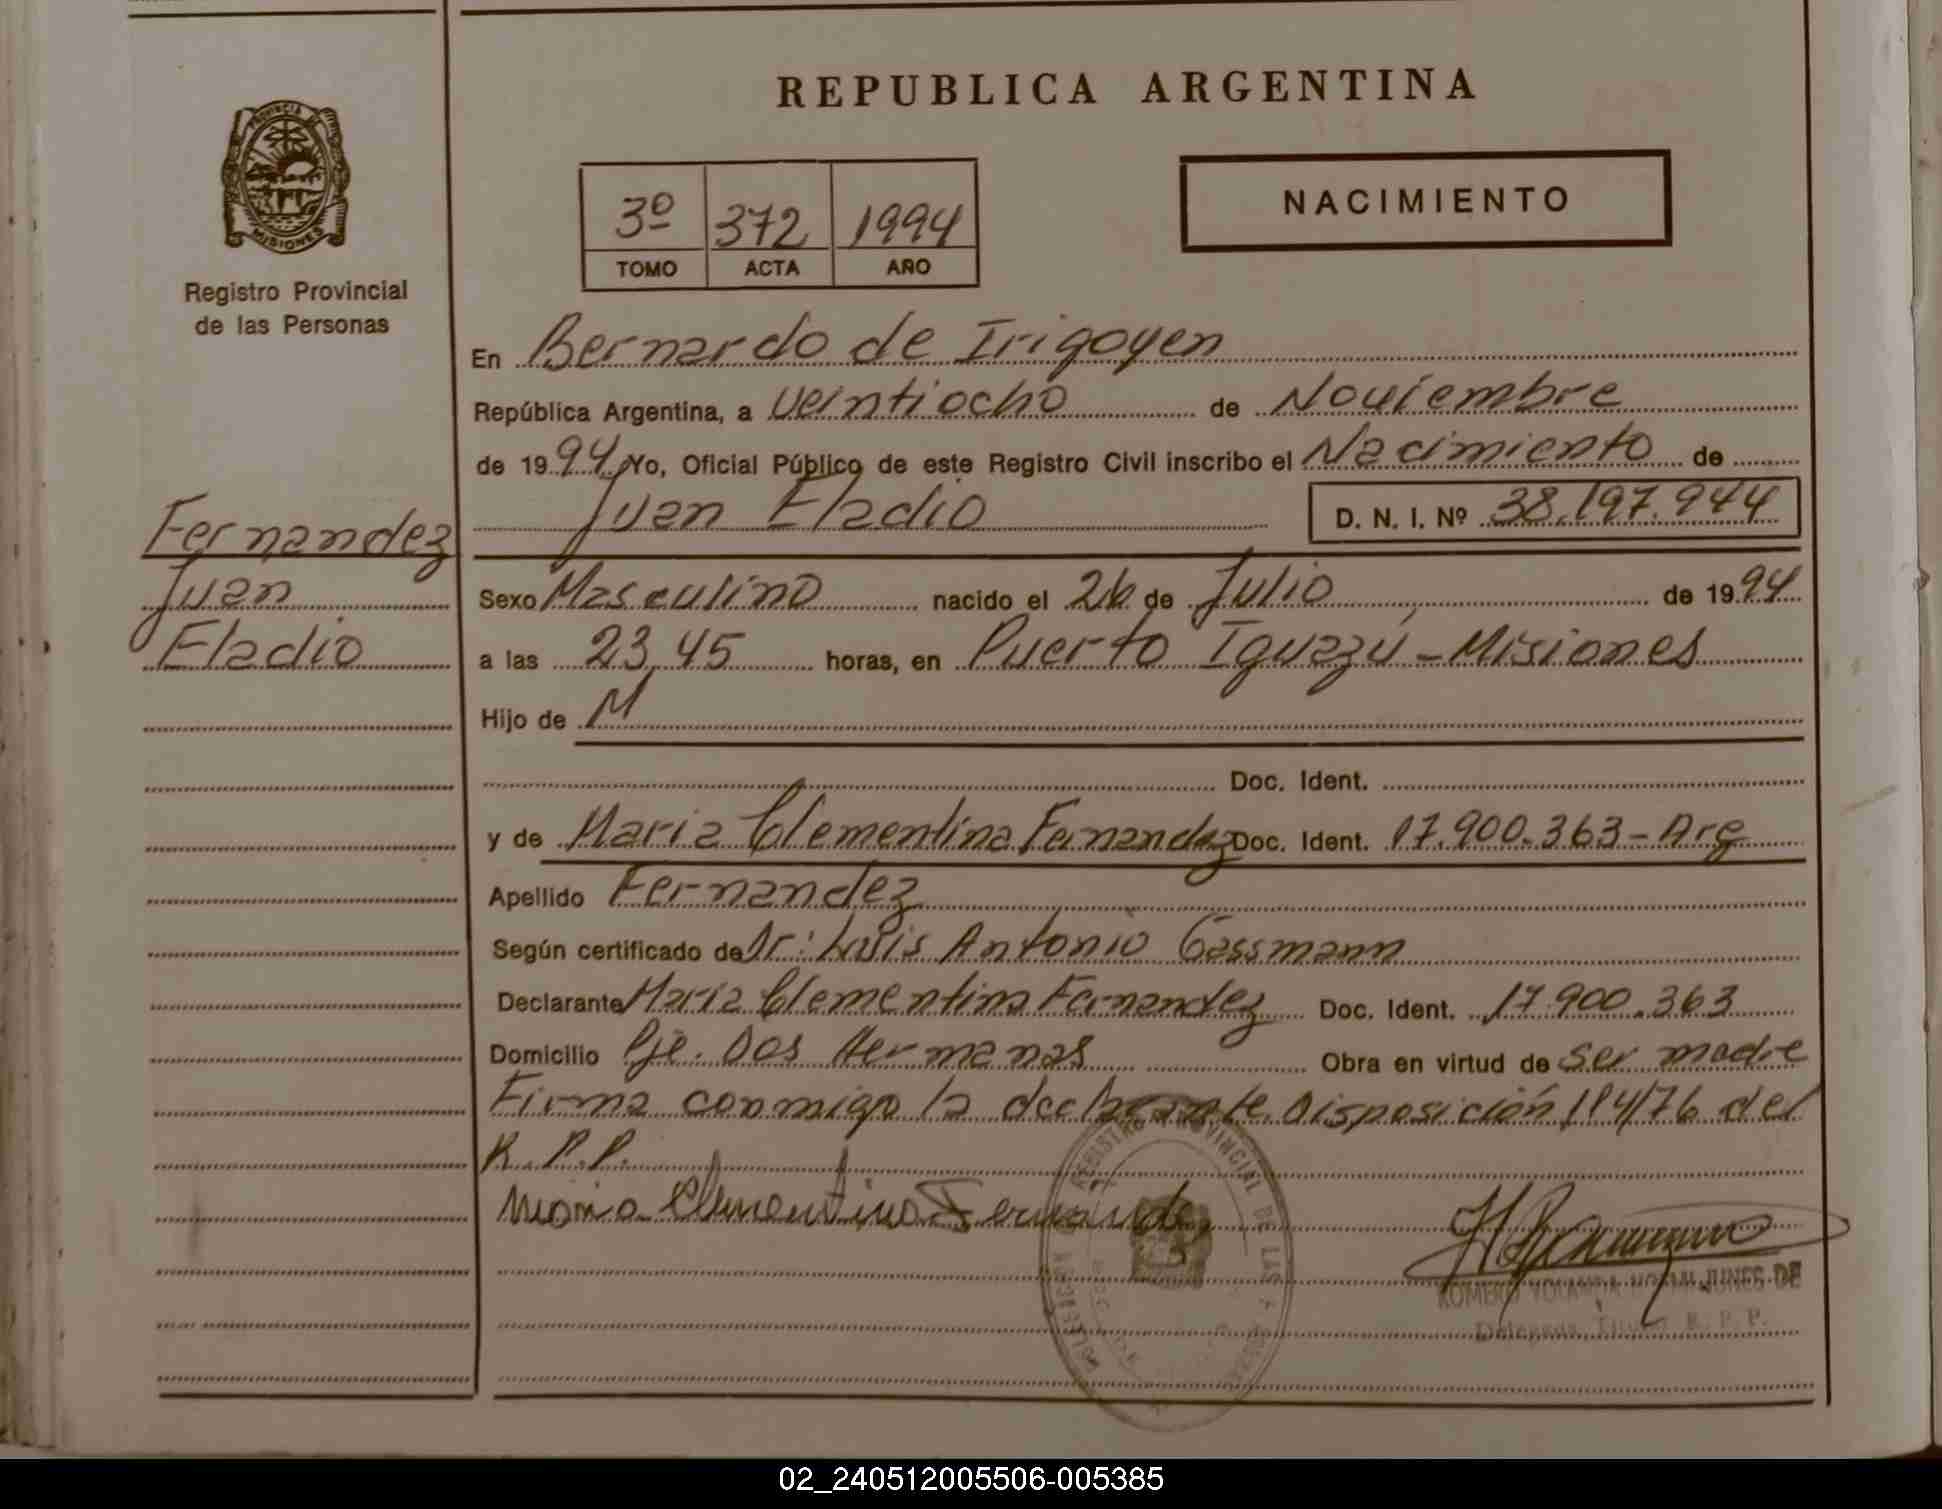 REPUBLICA ARGENTINA
PROVINCIA DE
MISIONES
Registro Provincial
de las Personas
3º 372 1994
TOMO ACTA AÑO
NACIMIENTO
En Bernardo de Irigoyen
República Argentina, a veintiocho de Noviembre
de 1994 Yo, Oficial Público de este Registro Civil inscribo el Nacimiento de
Juan Eladio D. N. I. Nº 38.197.944
Fernandez
Juan
Eladio
Sexo Masculino nacido el 26 de Julio de 1994
a las 23,45 horas, en Puerto Iguazú - Misiones
Hijo de M
Doc. Ident.
y de Maria Clementina Fernandez Doc. Ident. 17.900.363 - Arg
Apellido Fernandez
Según certificado de Dr: Luis Antonio Gassmann
Declarante Maria Clementina Fernandez Doc. Ident. 17.900.363
Domicilio Pje. Dos Hermanas Obra en virtud de ser madre
Firma conmigo la declarante. Disposición 114/76 del
R.P.P.
Maria Clementina Fernandez
REGISTRO PROVINCIAL DE LAS
ROMERO YOLANDA NOEMI JUNES DE
Delegada Titular R. P. P.
02_240512005506-005385